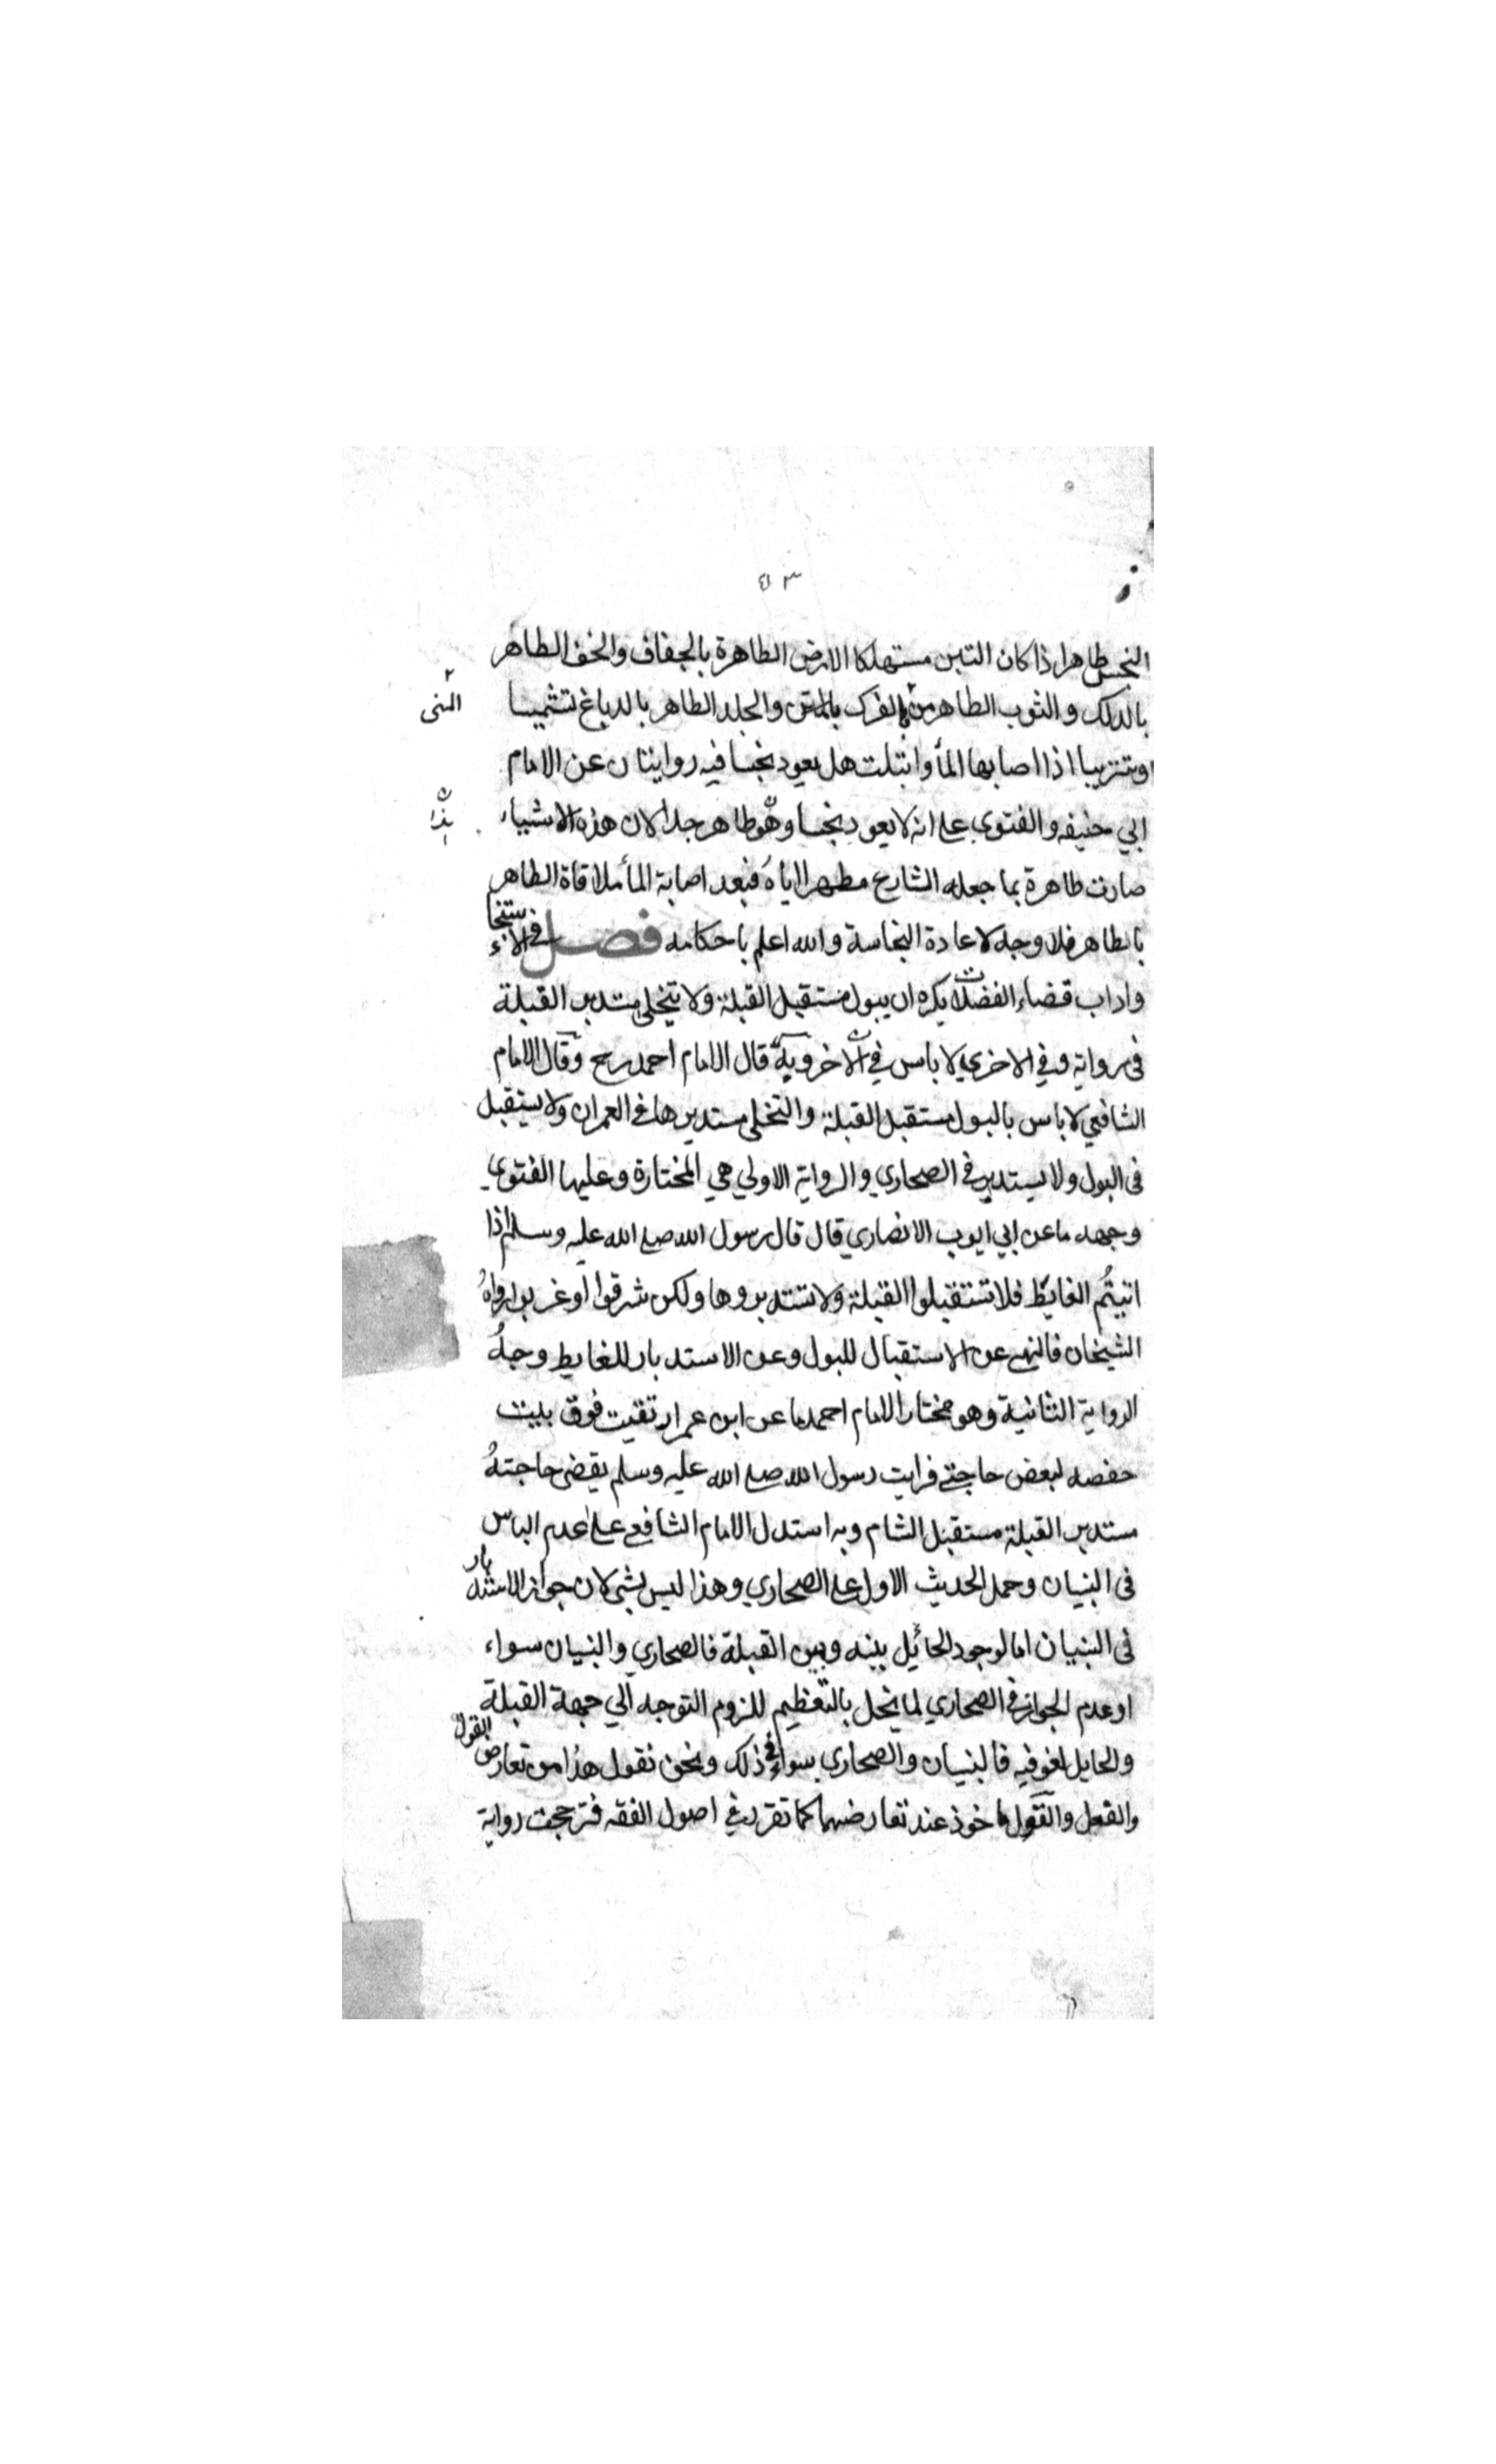 ٥٣
النجس طاهرا ذا كان التبن مستهلكا الارض الطاهرة بالجفاف والخف الطاهر
بالدلك و الثوب الطاهر من بالفرك والجلد الطاهر بالدباغ لتشميسا
المنى
وتتريبا اذا اصابها المأ وابتلت هل يعود نجسا فيه روايتان عن الامام
ابي حنيفه والفتوى على انه لا يعود نجسا وهو طاهر جدا لان هذه الاشياء
هذا
صارت طاهرة بما جعله الشارع مطهرا اياهُ فبعد اصابة المأ ملاقاة الطاهر
بالطاهر فلا وجه لاعادة النجاسة والله اعلم باحكامه فصل في الاستنجاء
واداب قضاء الفضلات يكره ان يبول مستقبل القبلة ولا يتخلى مستدبر القبلة
فى رواية وفي الاخرى لا باس في الاخر وبه قال الامام احمد رح وقال الامام
الشافعي لا باس بالبول مستقبل القبلة والتخلى مستدبرها في العمران ولا يستقبل
فى البول ولا يستدبر في الصحاري والرواية الاولي هي المختارة وعليها الفتوي
وجهه ما عن ابي ايوب الانصاري قال قال رسول الله صلى الله عليه وسلم اذا
اتيتُم الغايط فلا تستقبلوا القبلة ولا تستدبروها ولكن شرقوا او غربوا رواهُ
الشيخان فالنهى عن الاستقبال للبول وعن الاستدبار للغايط وجهُ
الرواية الثانية وهو مختار الامام احمد ما عن ابن عمر ارتقيت فوق بيت
حفصه لبعض حاجتي فرايت رسول الله صلى الله عليه وسلم يقضى حاجتهُ
مستدبر القبلة مستقبل الشام وبه استدل الامام الشافعي على عدم الباس
فى البنيان وحمل الحديث الاول على الصحاري وهذا ليس بشى لان جواز الاستدبار
فى البنيان اما لوجود الحائيل بينه وبين القبلة فالصحاري والبنيان سواء
او عدم الجواز في الصحاري لما يخل بالتعظيم للزوم التوجه الي جهة القبلة
والحايل لغو فيه فالبنيان والصحاري سواء في ذلك ونحن نقول هذا من تعارض القول
والفعل والقول ماخوذ عند تعارضهما كما تقرر في اصول الفقه فترجحت رواية